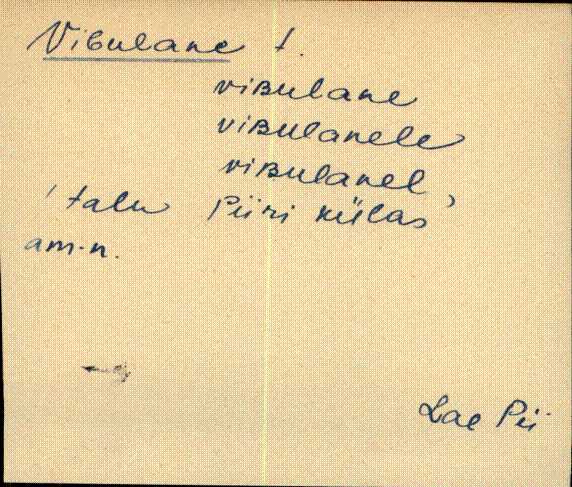 Vibulane t.
viʙulane
viʙulanele
viʙulanel,
'talu Piiri külas'
am.n.
Lae Pii